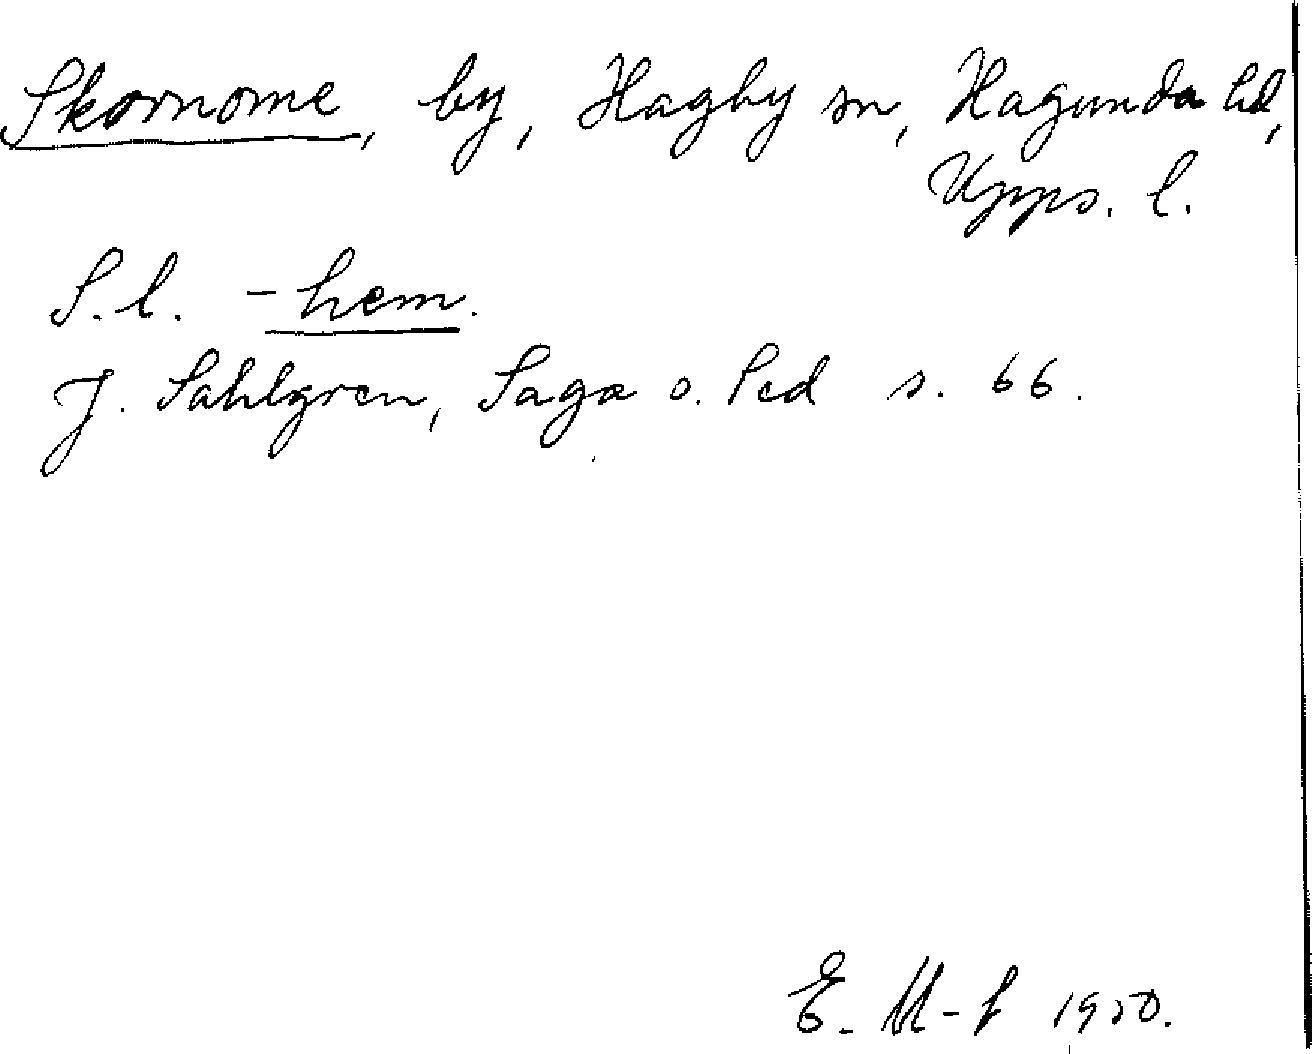 Skornome, by, Hagby sn, Hagunda hd,
Upps. l.
S.l. -hem.
J. Sahlgren, Saga o. Sed s. 66.
E. M-f 1950.